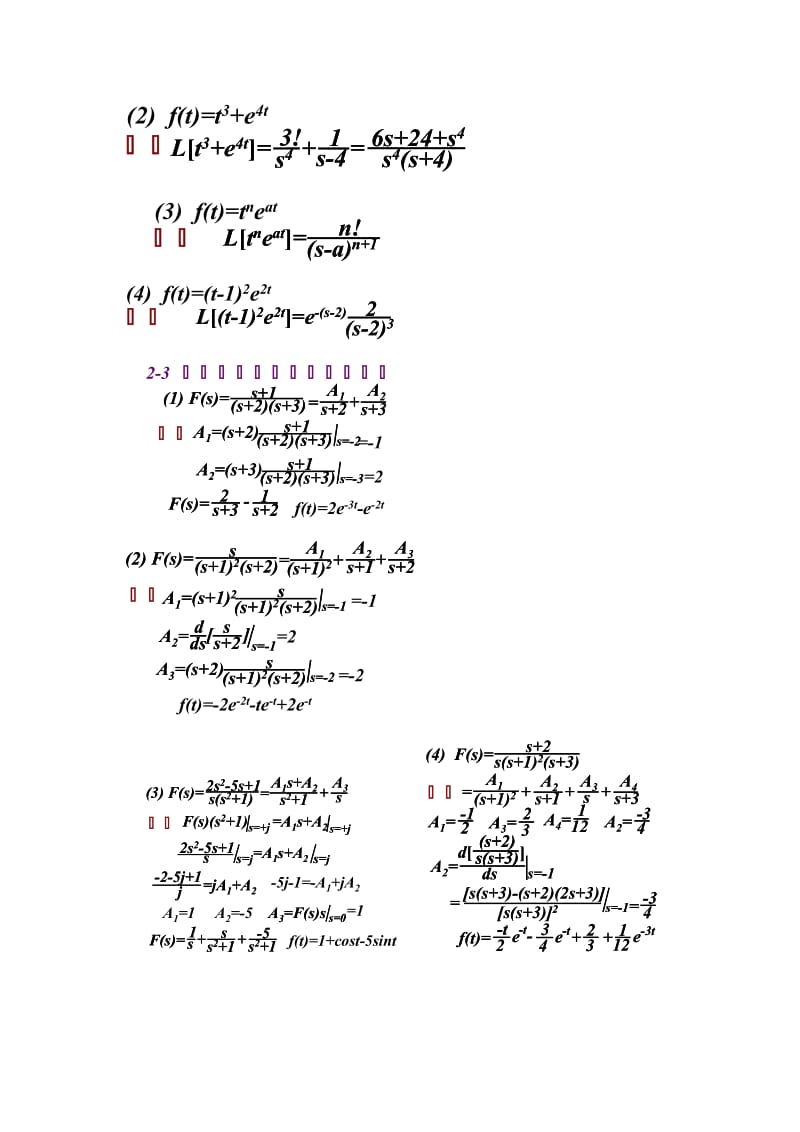 (2) f(t)=t³+e⁴ᵗ
L[t³+e⁴ᵗ]=3!/s⁴+1/(s-4)=(6s+24+s⁴)/(s⁴(s+4))
(3) f(t)=tⁿeᵃᵗ
L[tⁿeᵃᵗ]=n!/(s-a)ⁿ⁺¹
(4) f(t)=(t-1)²e²ᵗ
L[(t-1)²e²ᵗ]=e^-(s-2) 2/(s-2)³
2-3
(1) F(s)=(s+1)/((s+2)(s+3))=A₁/(s+2)+A₂/(s+3)
A₁=(s+2)(s+1)/((s+2)(s+3))|s=-2=-1
A₂=(s+3)(s+1)/((s+2)(s+3))|s=-3=2
F(s)=2/(s+3)-1/(s+2) f(t)=2e⁻³ᵗ-e⁻²ᵗ
(2) F(s)=s/((s+1)²(s+2))=A₁/(s+1)²+A₂/(s+1)+A₃/(s+2)
A₁=(s+1)²s/((s+1)²(s+2))|s=-1 =-1
A₂=d/ds[s/(s+2)]|s=-1=2
A₃=(s+2)s/((s+1)²(s+2))|s=-2 =-2
f(t)=-2e⁻²ᵗ-te⁻ᵗ+2e⁻ᵗ
(3) F(s)=(2s²-5s+1)/(s(s²+1))=(A₁s+A₂)/(s²+1)+A₃/s
F(s)(s²+1)|s=+j =A₁s+A₂|s=+j
(2s²-5s+1)/s|s=j=A₁s+A₂|s=j
(-2-5j+1)/j=jA₁+A₂ -5j-1=-A₁+jA₂
A₁=1 A₂=-5 A₃=F(s)s|s=0=1
F(s)=1/s+s/(s²+1)+-5/(s²+1) f(t)=1+cost-5sint
(4) F(s)=(s+2)/(s(s+1)²(s+3))
=A₁/(s+1)²+A₂/(s+1)+A₃/s+A₄/(s+3)
A₁=-1/2 A₃=2/3 A₄=1/12 A₂=-3/4
A₂=d[(s+2)/(s(s+3))]/ds|s=-1
=[s(s+3)-(s+2)(2s+3)]/[s(s+3)]²|s=-1=-3/4
f(t)=-t/2 e⁻ᵗ-3/4 e⁻ᵗ+2/3+1/12 e⁻³ᵗ